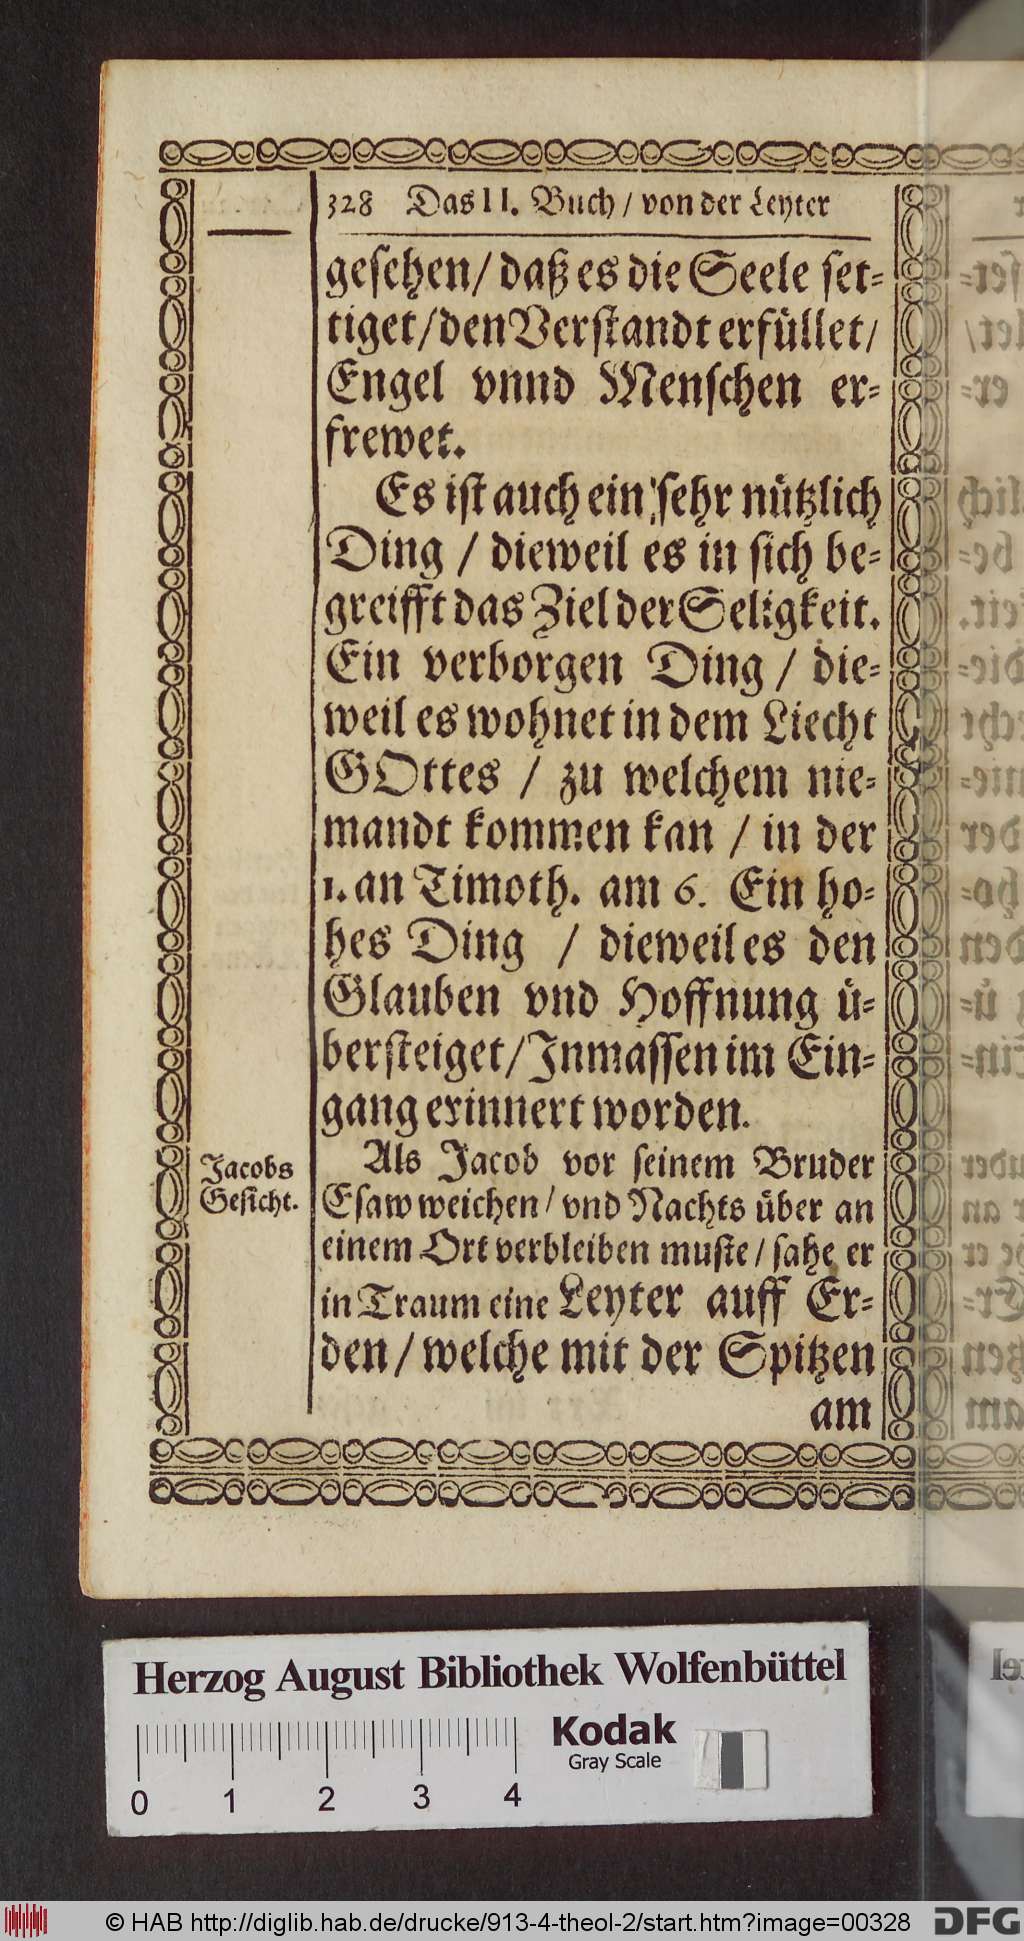 328 Das II. Buch / von der Leyter
gesehen / daß es die Seele set-
tiget / den Verstandt erfüllet /
Engel vnnd Menschen er-
frewet.
Es ist auch ein sehr nützlich
Ding / dieweil es in sich be-
greifft das Ziel der Seligkeit.
Ein verborgen Ding / die-
weil es wohnet in dem Liecht
GOttes / zu welchem nie-
mandt kommen kan / in der
1. an Timoth. am 6. Ein ho-
hes Ding / dieweil es den
Glauben vnd Hoffnung ü-
bersteiget / Inmassen im Ein-
gang erinnert worden.
Jacobs
Gesicht.
Als Jacob vor seinem Bruder
Esaw weichen / vnd Nachts über an
einem Ort verbleiben muste / sahe er
in Traum eine Leyter auff Er-
den / welche mit der Spitzen
am
Herzog August Bibliothek Wolfenbüttel
Kodak
Gray Scale
0 1 2 3 4
© HAB http://diglib.hab.de/drucke/913-4-theol-2/start.htm?image=00328
DFG